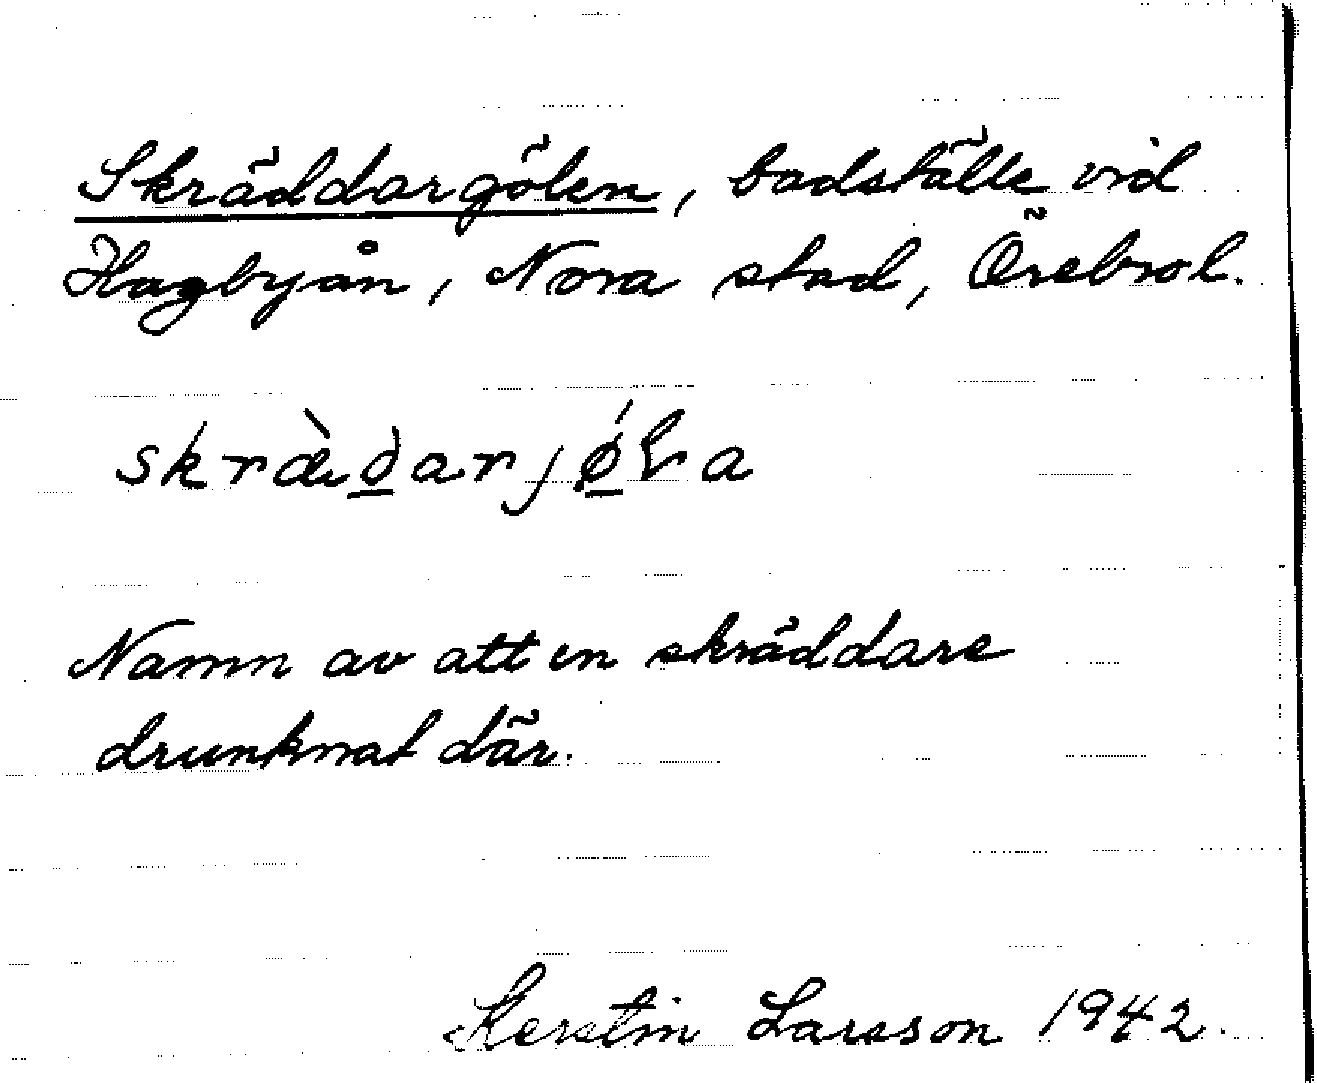 Skräddargölen, badställe vid
Hagbyån, Nora stad, Örebro l.
skræ̀d̲arjǿ̲ɽa
Namn av att en skräddare
drunknat där.
Kerstin Larsson 1942.